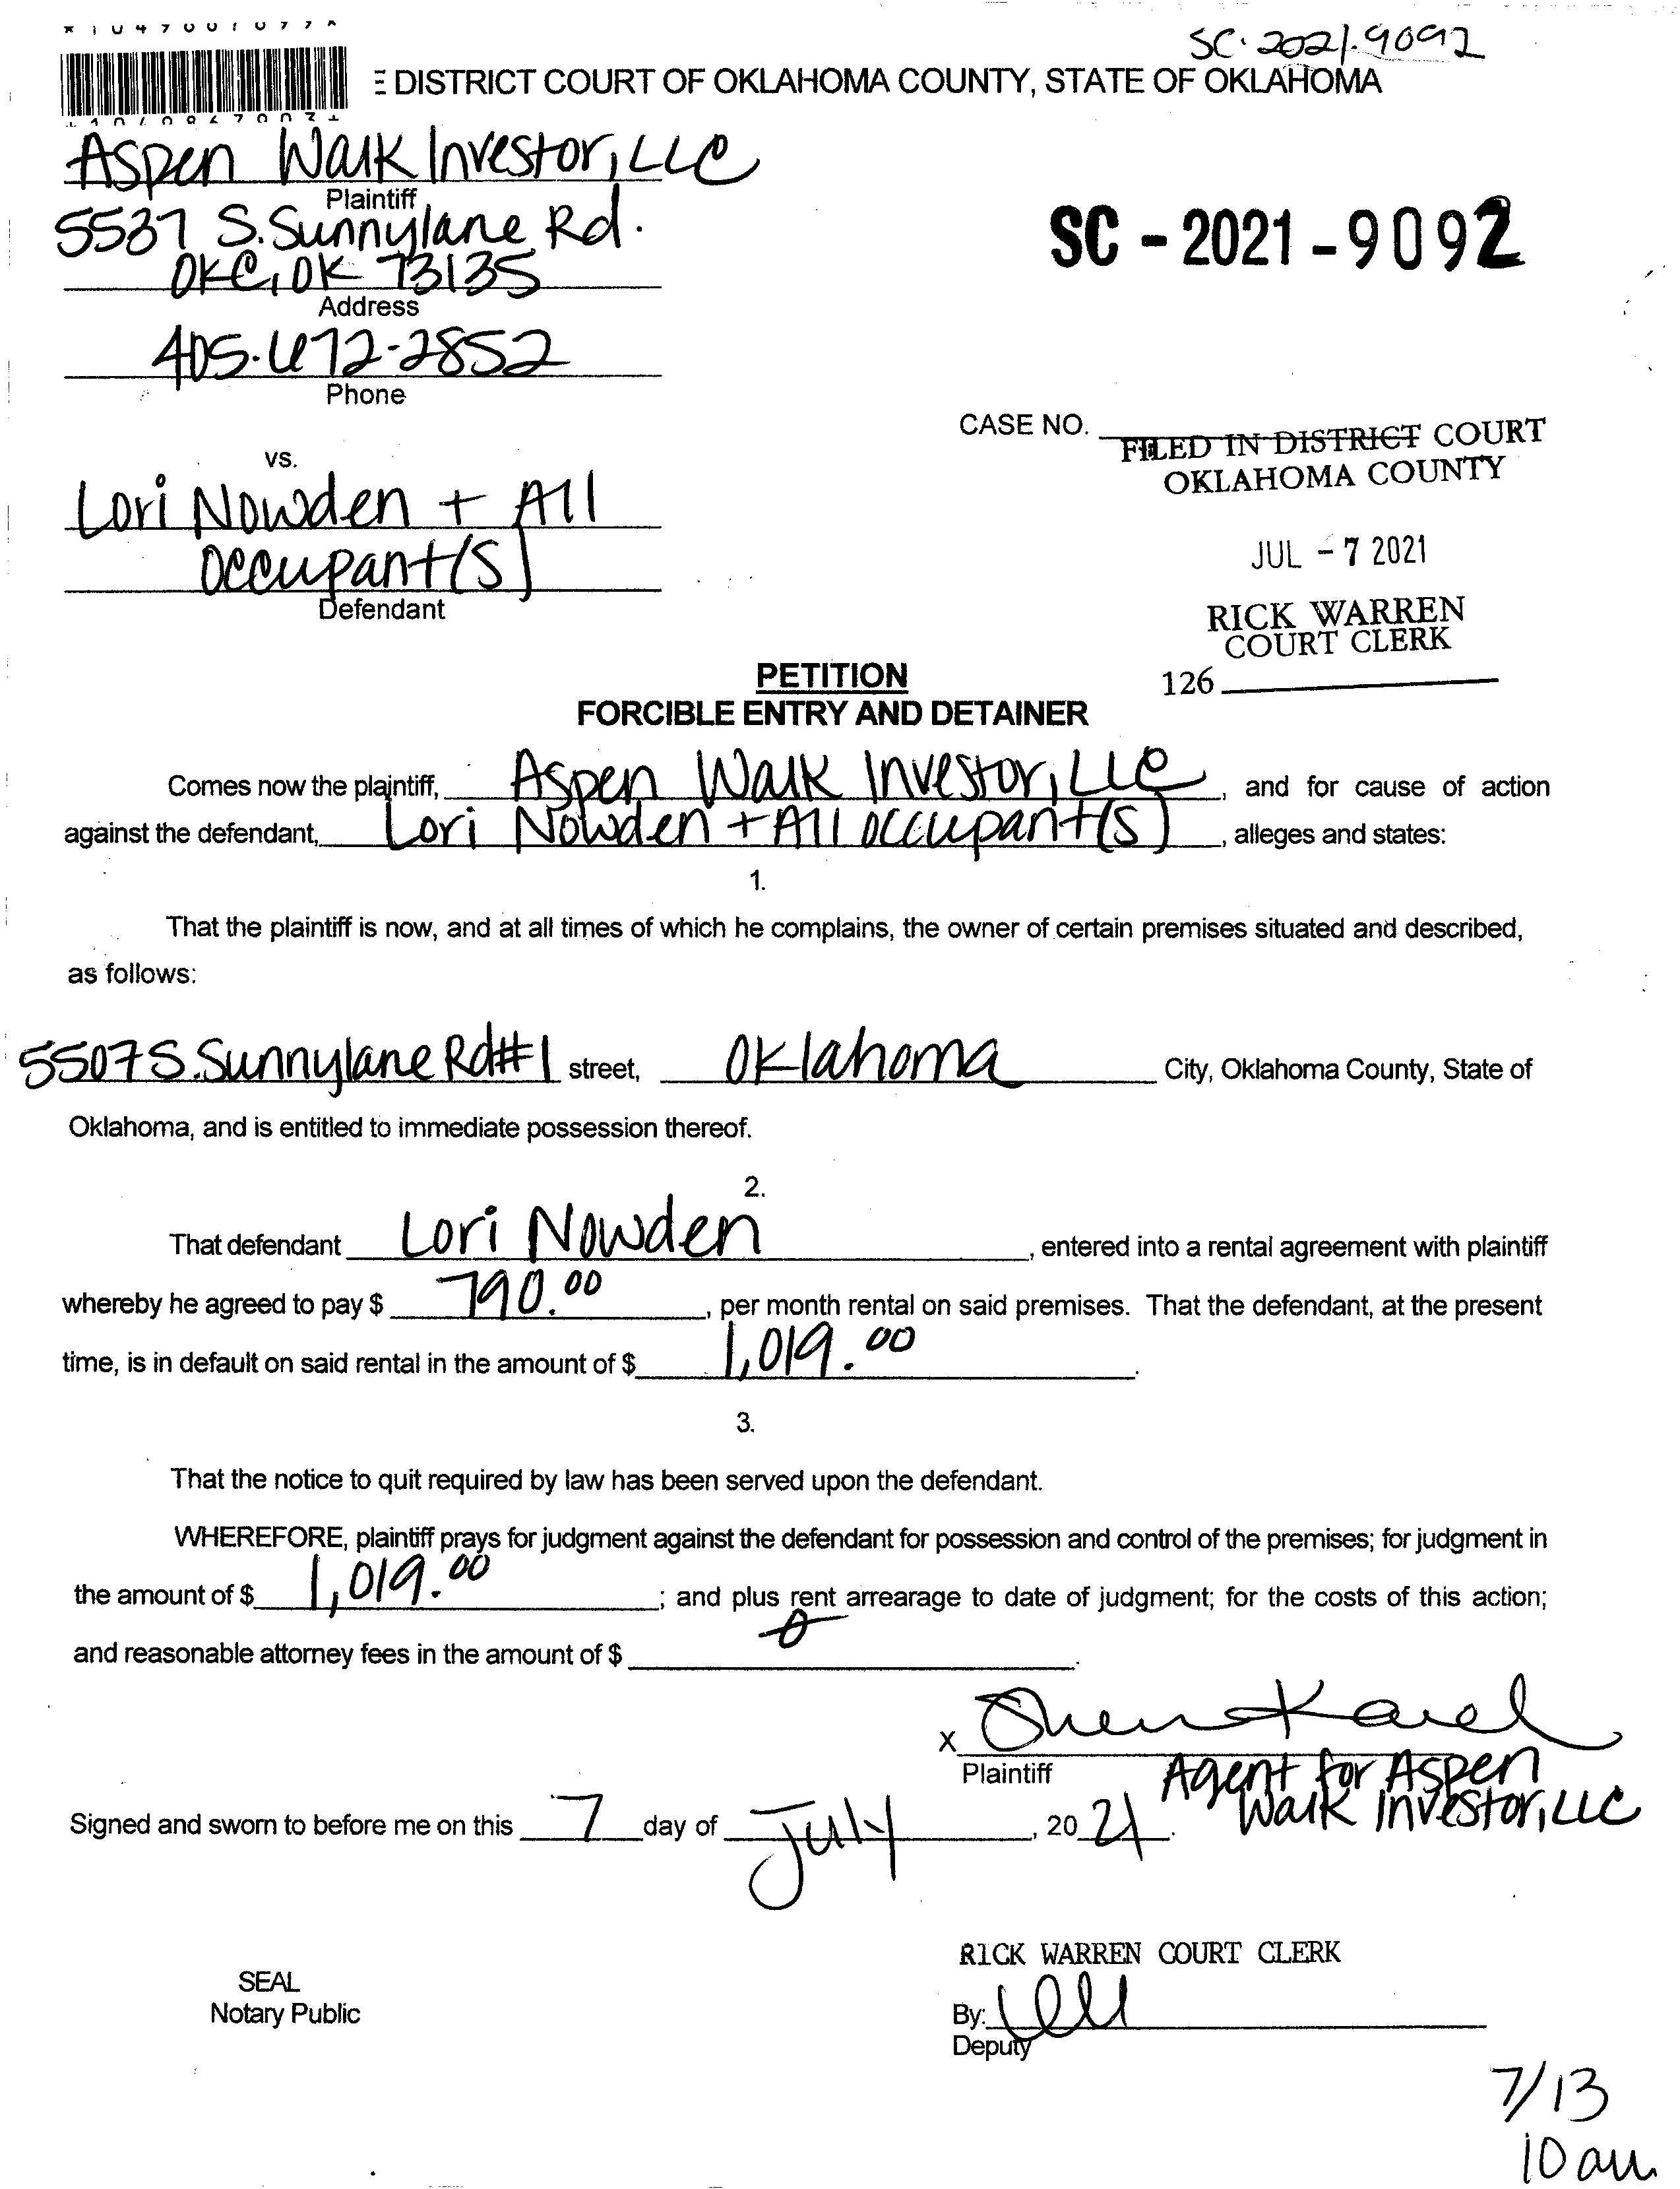 SC-2021-9092
E DISTRICT COURT OF OKLAHOMA COUNTY, STATE OF OKLAHOMA
Aspen Walk Investor, LLC
Plaintiff
5537 S. Sunnylane Rd.
OKC, OK 73135
Address
SC - 2021 - 9092
405-672-2852
Phone
CASE NO.
FILED IN DISTRICT COURT
OKLAHOMA COUNTY
vs.
Lori Nowden + All
Occupant(s)
Defendant
JUL - 7 2021
RICK WARREN
COURT CLERK
126
PETITION
FORCIBLE ENTRY AND DETAINER
Comes now the plaintiff, Aspen Walk Investor, LLC, and for cause of action
against the defendant, Lori Nowden + All Occupant(s), alleges and states:
1.
That the plaintiff is now, and at all times of which he complains, the owner of certain premises situated and described,
as follows:
5507 S. Sunnylane Rd #1 street, Oklahoma City, Oklahoma County, State of
Oklahoma, and is entitled to immediate possession thereof.
2.
That defendant Lori Nowden, entered into a rental agreement with plaintiff
whereby he agreed to pay $ 790.00, per month rental on said premises. That the defendant, at the present
time, is in default on said rental in the amount of $ 1,019.00.
3.
That the notice to quit required by law has been served upon the defendant.
WHEREFORE, plaintiff prays for judgment against the defendant for possession and control of the premises; for judgment in
the amount of $ 1,019.00; and plus rent arrearage to date of judgment; for the costs of this action;
and reasonable attorney fees in the amount of $ 0.
X
Plaintiff
Agent for Aspen
Walk Investor, LLC
Signed and sworn to before me on this 7 day of July, 2021.
RICK WARREN COURT CLERK
SEAL
Notary Public
By:
Deputy
7/13
10 am